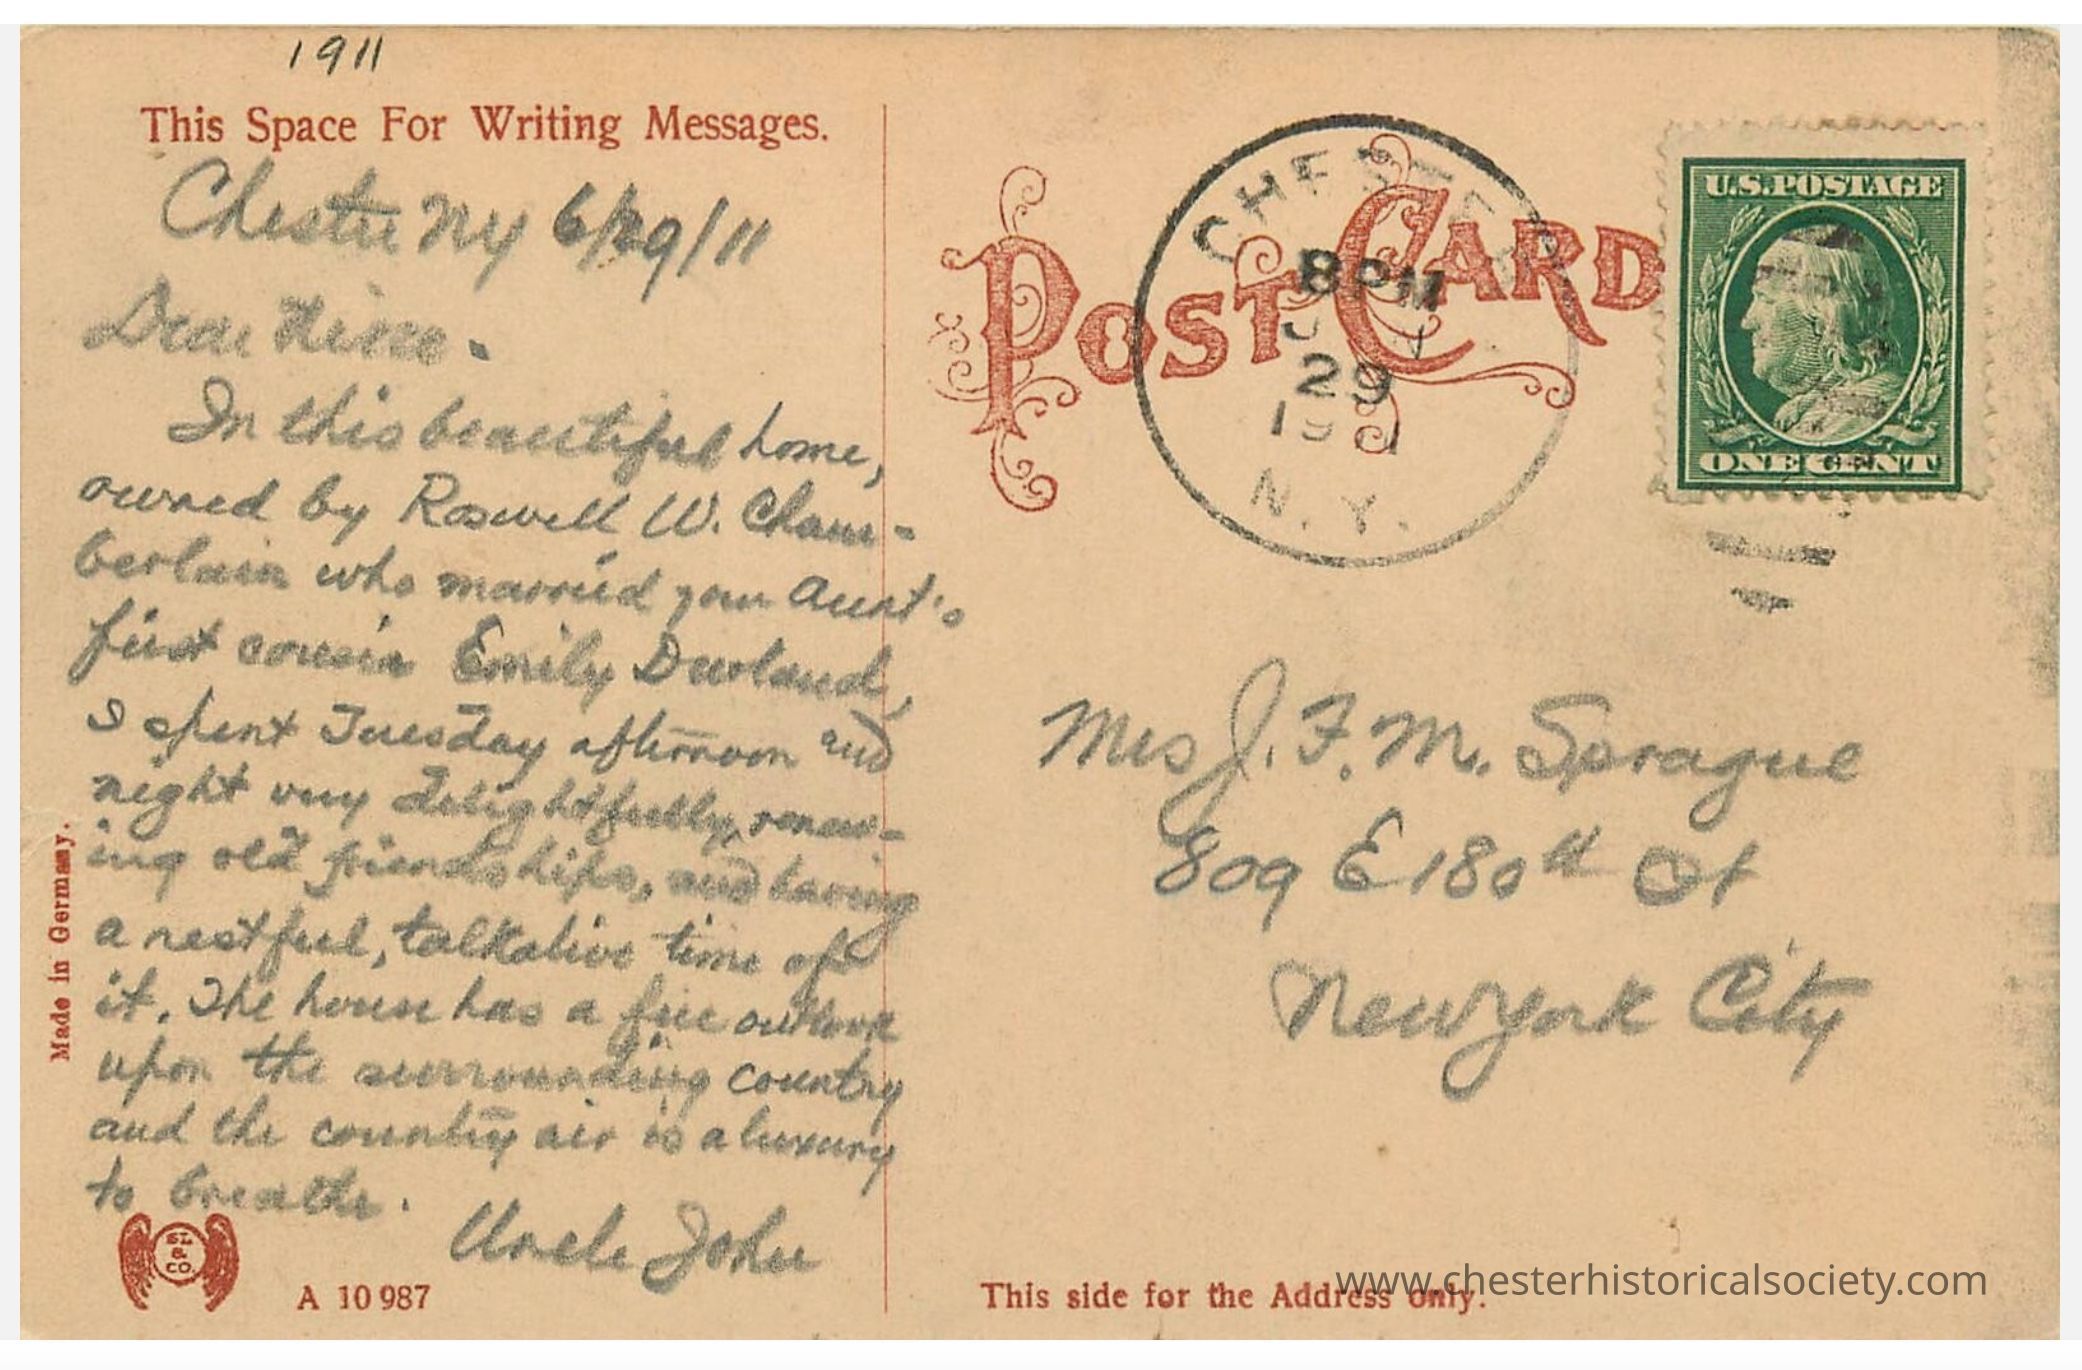 1911
This Space For Writing Messages.
Chester NY 6/29/11
Dear
In this beautiful home,
owned by Roswell W. Cham-
berlain who married your Aunt's
first cousin Emily Durland,
I spent Tuesday afternoon and
night very delightfully, renew-
ing old friendships, and having
a restful, talkative time of
it. The house has a fine outlook
upon the surrounding country
and the country air is a luxury
to breathe.
Uncle John
Made in Germany.
SL
&
CO.
A 10987
POST CARD
CHESTER
8 PM
JUN
29
1911
N.Y.
U.S. POSTAGE
ONE CENT
Mrs J. F. M. Sprague
809 E 180th St
New York City
This side for the Address only.
www.chesterhistoricalsociety.com